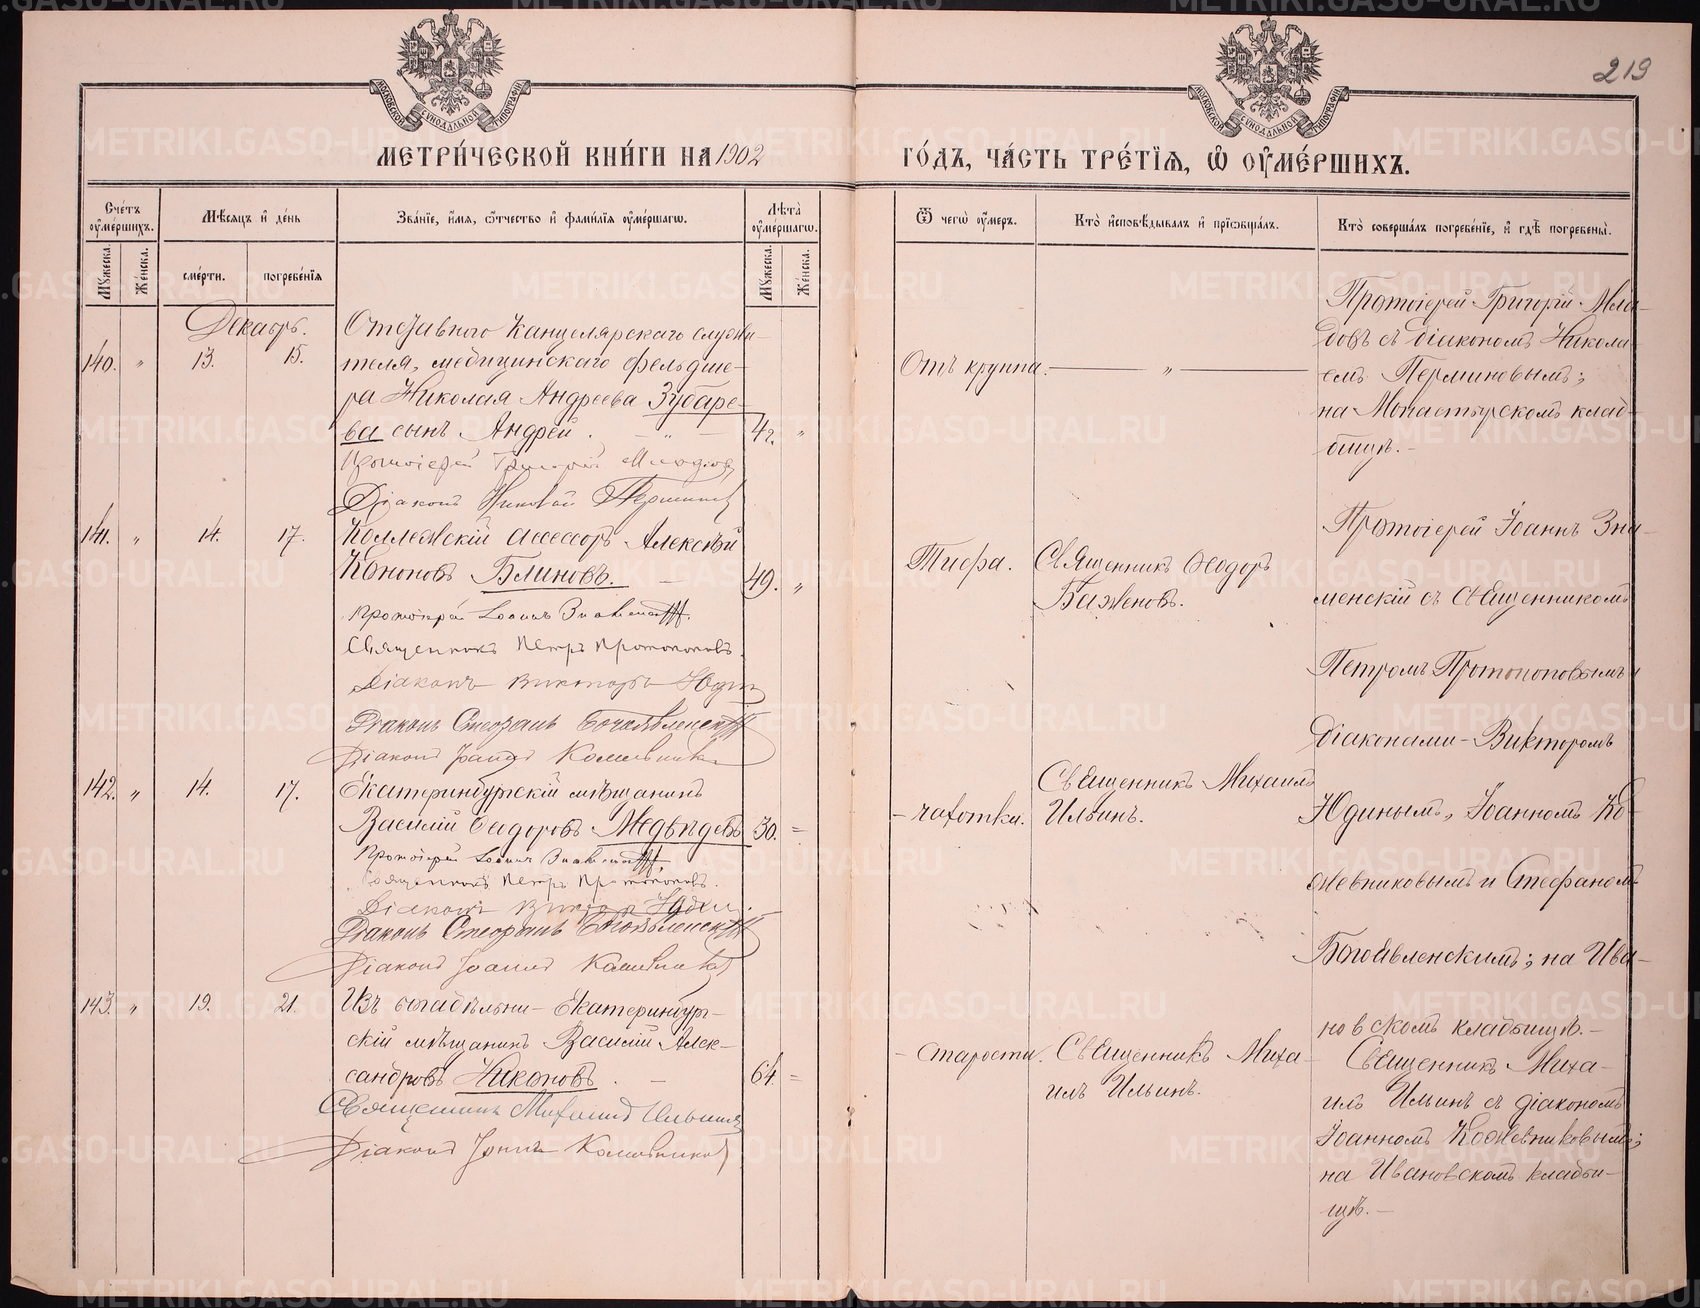 219
МОСКОВСКОЙ СѴНОДАЛЬНОЙ ТИПОГРАФІИ
МОСКОВСКОЙ СѴНОДАЛЬНОЙ ТИПОГРАФІИ
МЕТРИ́ЧЕСКОЙ КНИ́ГИ НА 1902
ГО́ДЪ, ЧА́СТЬ ТРЕ́ТЇѦ, Ѡ҆ ОУ҆МЕ́РШИХЪ.
Сче́тъ оу҆ме́ршихъ.
Мѣ́сяцъ и҆ де́нь
Зва́нїе, и҆́мя, ѻ҆́тчество и҆ фами́лїя оу҆ме́ршагѡ.
Лѣ́та оу҆ме́ршагѡ.
Ѿ чегѡ̀ оу҆́меръ.
Кто̀ и҆сповѣ́дывалъ и҆ прїѡбща́лъ.
Кто̀ соверша́лъ погребе́нїе, и҆ гдѣ̀ погребены̀.
Мꙋ́жеска.
Же́нска.
сме́рти.
погребе́нїя
Мꙋ́жеска.
Же́нска.
Декабрь.
140. " 13. 15.
Отставного канцелярскаго служи-
теля, медицинскаго фельдше-
ра Николая Андреева Зубаре-
ва сынъ Андрей. — " —
4 г. "
Протоіерей Григорій
Діаконъ Николай Перминовъ
Отъ круппа. — " —
Протоіерей Григорій Мла-
довъ съ діакономъ Никола-
емъ Перминовымъ;
на Монастырскомъ клад-
бищѣ. —
141. " 14. 17.
Коллежскій ассесоръ Алексѣй
Кононовъ Блиновъ. —
49. "
Протоіерей Іоаннъ Знаменскій.
Священникъ Петръ Протопоповъ.
Діаконъ Викторъ Юдинъ
Діаконъ Стефанъ Богоявленскій
Діаконъ Іоаннъ Кожевниковъ
Тифа.
Священникъ Ѳеодоръ
Баженовъ.
Протоіерей Іоаннъ Зна-
менскій съ Священникомъ
Петромъ Протопоповымъ и
діаконами - Викторомъ
Юдинымъ, Іоанномъ Ко-
жевниковымъ и Стефаномъ
Богоявленскимъ; на Ива-
новскомъ кладбищѣ. —
142. " 14. 17.
Екатеринбургскій мѣщанинъ
Василій Сидоровъ Медвѣдевъ
30. =
Протоіерей Іоаннъ Знаменскій
Священникъ Петръ Протопоповъ.
Діаконъ Викторъ Юдинъ.
Діаконъ Стефанъ Богоявленскій
Діаконъ Іоаннъ Кожевниковъ
- чахотки.
Священникъ Михаилъ
Ильинъ.
143. " 19. 21.
Изъ богадѣльни - Екатеринбург-
скій мѣщанинъ Василій Алек-
сандровъ Никоновъ. —
64 =
Священникъ Михаилъ Ильинъ
Діаконъ Іоаннъ Кожевниковъ
- старости.
Священникъ Миха-
илъ Ильинъ.
Священникъ Миха-
илъ Ильинъ съ діакономъ
Іоанномъ Кожевниковымъ;
на Ивановскомъ кладби-
щѣ. —
METRIKI.GASO-URAL.RU